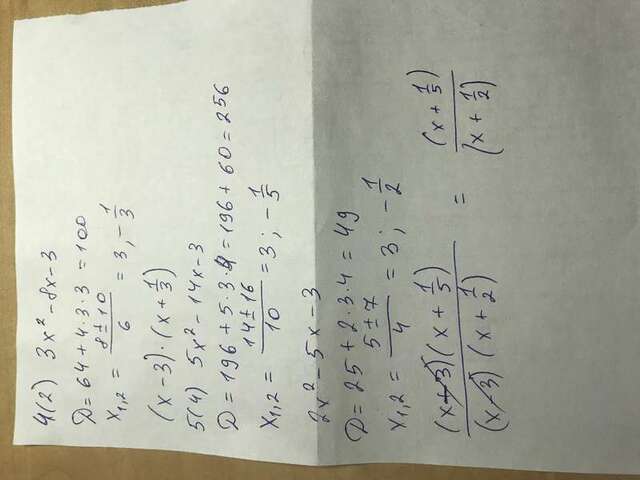 4(2) 3x² - 8x - 3
D = 64 + 4·3·3 = 100
x₁,₂ = (8 ± 10)/6 = 3, -1/3
(x - 3)·(x + 1/3)
5(4) 5x² - 14x - 3
D = 196 + 5·3·4 = 196 + 60 = 256
x₁,₂ = (14 ± 16)/10 = 3; -1/5
2x² - 5x - 3
D = 25 + 2·3·4 = 49
x₁,₂ = (5 ± 7)/4 = 3; -1/2
(x - 3)(x + 1/5)/(x - 3)(x + 1/2) = (x + 1/5)/(x + 1/2)